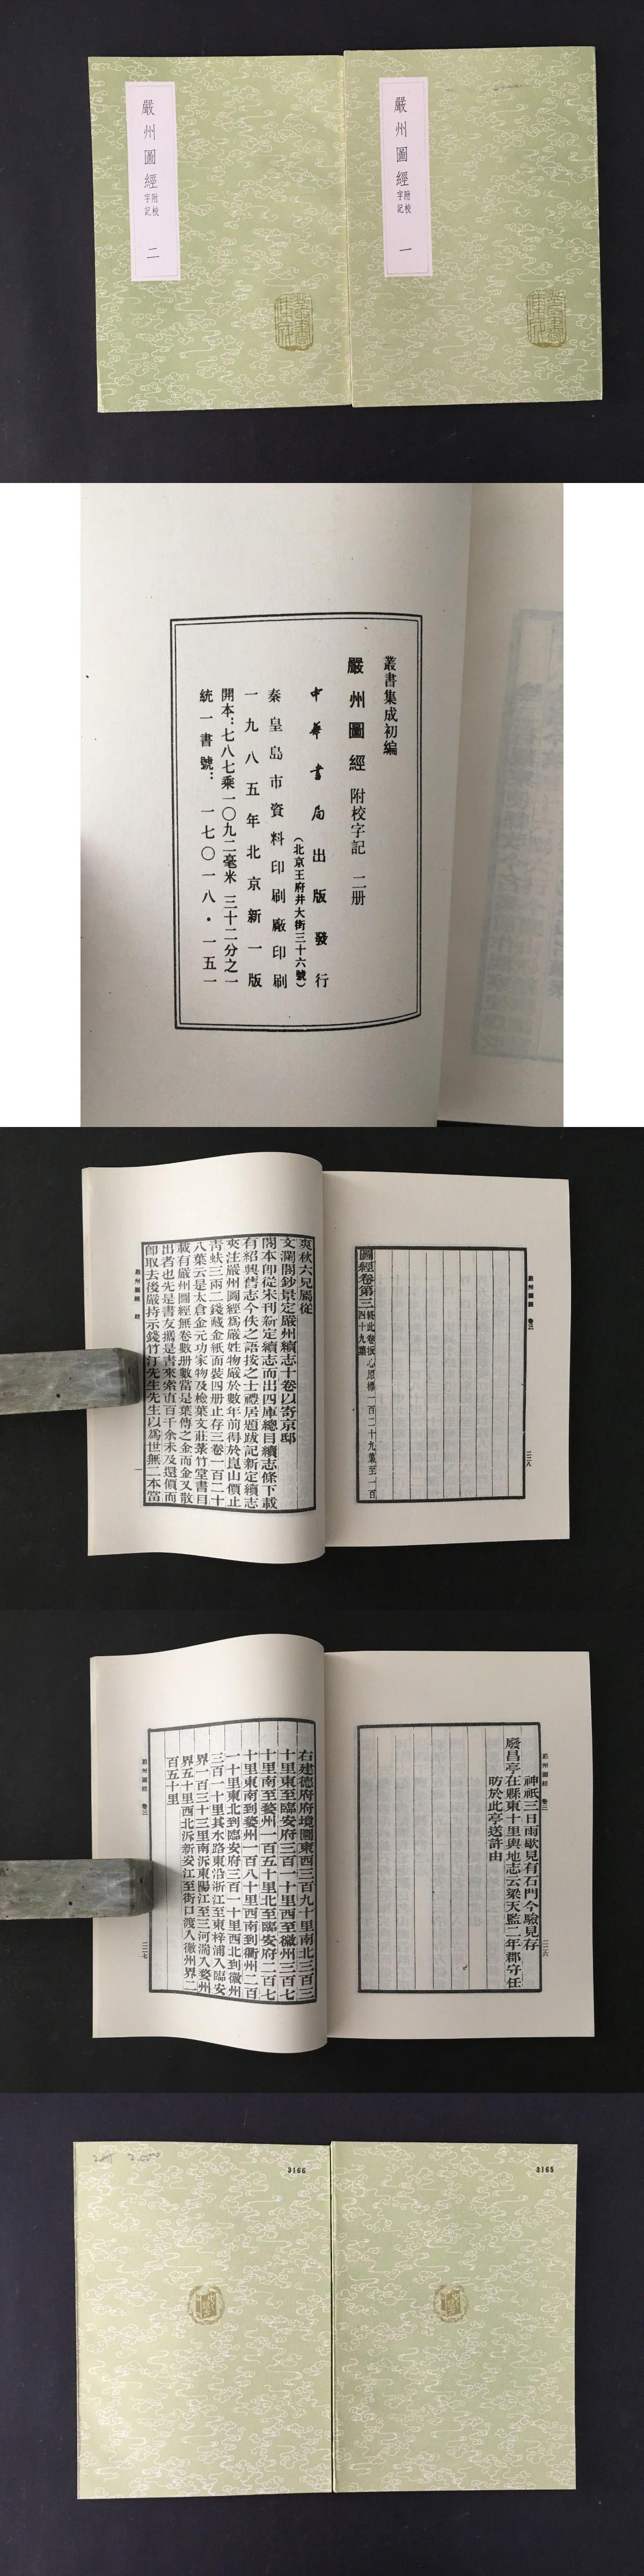 嚴州圖經附校字記 一
嚴州圖經附校字記 二
叢書集成初編
嚴州圖經 附校字記 二册
中華書局出版發行
(北京王府井大街三十六號)
秦皇島市資料印刷廠印刷
一九八五年北京新一版
開本:七八七乘一〇九二毫米 三十二分之一
統一書號: 一七〇一八·一五一
嚴州圖經 卷三
二二八
圖經卷第三終此卷板心原標一百二十九葉至一百四十九葉
爽秋六兄屬從
文瀾閣鈔景定嚴州續志十卷以寄京邸
閣本卽從宋刊新定續志而出四庫總目續志條下載
有紹興舊志今佚之語按之士禮居題跋記新定續志
夾注嚴州圖經爲嚴姓物嚴於數年前得於崑山價止
青蚨三兩二錢藏金紙面裝四册止存三卷一百二十
八葉云是太倉金元功家物及檢葉文莊菉竹堂書目
載有嚴州圖經無卷數册數當是葉傳之金而金又散
出者也先是書友攜是書來索直百千余未及還價而
卽取去後嚴持示錢竹汀先生先生以爲世無二本當
嚴州圖經 跋
一
嚴州圖經 卷三
二二六
神祇三日雨歇見有石門今驗見存
廢昌亭在縣東十里輿地志云梁天監二年郡守任
昉於此亭送許由
右建德府府境圖東西三百九十里南北三百三
十里東至臨安府三百一十里西至徽州三百七
十里南至婺州一百五十里北至臨安府二百七
十里東南到婺州一百八十里西南到衢州二百
一十里東北到臨安府三百一十里西北到徽州
三百一十里其水路東沿浙江至東梓浦入臨安
界一百三十三里南泝東陽江至三河湍入婺州
界五十里西北泝新安江至街口渡入徽州界二
百五十里
嚴州圖經 卷三
二二七
3166
3165